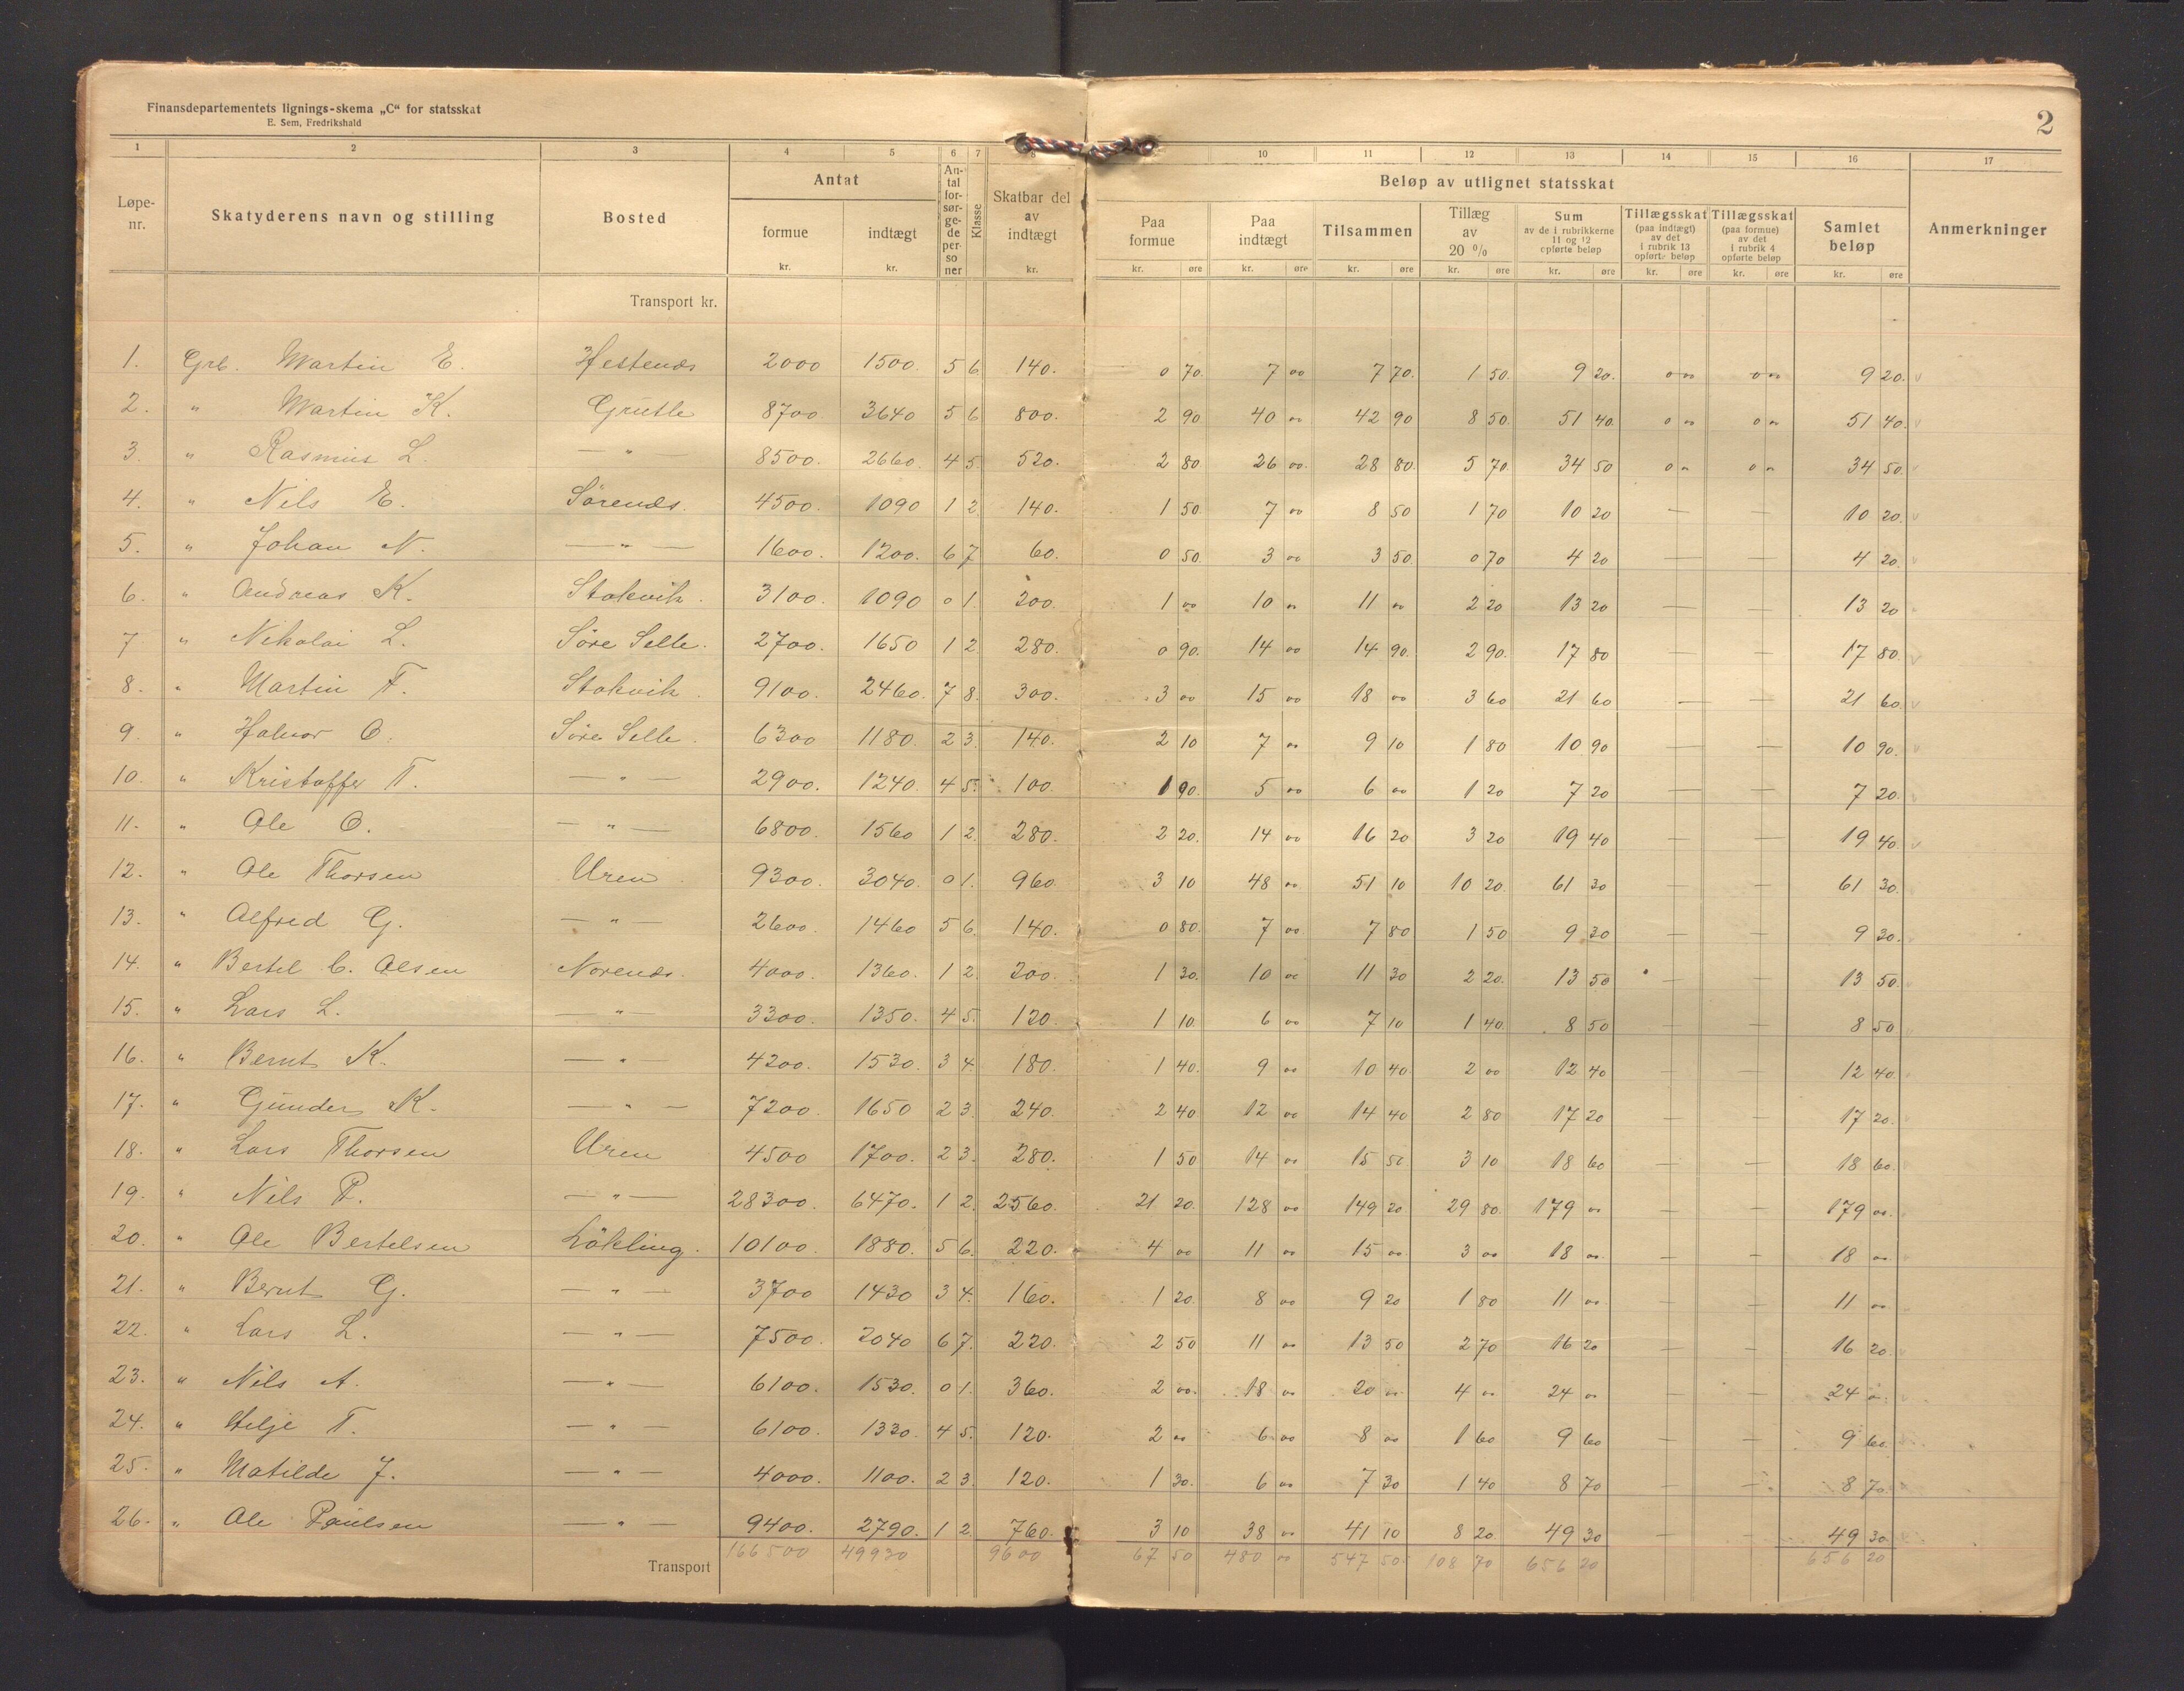 Finansdepartementets lignings-skema „C“ for statsskat
E. Sem, Fredrikshald
2
1 2 3 4 5 6 7 8 10 11 12 13 14 15 16 17
Løpe-nr. Skatyderens navn og stilling Bosted Antat formue kr. indtægt kr. Antal forsørgede personer Klasse Skatbar del av indtægt kr. Beløp av utlignet statsskat Paa formue kr. øre Paa indtægt kr. øre Tilsammen kr. øre Tillæg av 20 % kr. øre Sum av de i rubrikkerne 11 og 12 opførte beløp kr. øre Tillægsskat (paa indtægt) av det i rubrik 13 opførte beløp kr. øre Tillægsskat (paa formue) av det i rubrik 4 opførte beløp kr. øre Samlet beløp kr. øre Anmerkninger
Transport kr.
1. Grb. Martin E. Hestenes 2000 1500. 5 6 140. 0 70. 7 00 7 70. 1 50. 9 20. 0 00 0 00 9 20. v
2. " Martin K. Grutle 8700. 3640 5 6 800. 2 90 40 00 42 90 8 50. 51 40. 0 00 0 00 51 40. v
3. " Rasmus L. — " — 8500. 2660. 4 5. 520. 2 80. 26 00. 28 80. 5 70. 34 50 0 00 0 00 34 50. v
4. " Nils E. Sørenes. 4500. 1090 1 2. 140. 1 50. 7 00 8 50 1 70 10 20 — — 10 20. v
5. " Johan N. — " — 1600. 1200. 6 7. 60. 0 50. 3 00 3 50. 0 70 4 20 — — 4 20. v
6. " Andreas K. Stokvik. 3100. 1090 0 1. 200. 1 00 10 00 11 00 2 20 13 20 — — 13 20
7 " Nikolai L. Søre Selle. 2700. 1650 1 2 280. 0 90. 14 00 14 90. 2 90. 17 80 — — 17 80. v
8. " Martin T. Stokvik. 9100. 2460. 7 8. 300. 3 00 15 00 18 00 3 60 21 60 — — 21 60. v
9. " Halvor O. Søre Selle. 6300 1180. 2 3. 140. 2 10 7 00 9 10 1 80 10 90 — — 10 90. v
10. " Kristoffer T. — " — 2900. 1240. 4 5. 100. 1 90. 5 00 6 00 1 20 7 20 — — 7 20. v
11. " Ole O. — " — 6800. 1560 1 2. 280. 2 20. 14 00 16 20 3 20 19 40 — — 19 40. v
12. " Ole Thorsen Uren 9300. 3040. 0 1. 960. 3 10 48 00 51 10 10 20. 61 30 — — 61 30.
13. " Alfred G. — " — 2600. 1460 5 6. 140. 0 80. 7 00. 7 80 1 50 9 30 — — 9 30.
14. " Bertel C. Olsen Norenes. 4000. 1360. 1 2. 200. 1 30. 10 00 11 30 2 20. 13 50 — — 13 50.
15. " Lars L. — " — 3300. 1350. 4 5. 120. 1 10. 6 00 7 10 1 40. 8 50 — — 8 50
16. " Bernt K. — " — 4200. 1530. 3 4. 180. 1 40. 9 00 10 40. 2 00 12 40 — — 12 40.
17. " Gunder K. — " — 7200. 1650 2 3. 240. 2 40 12 00 14 40 2 80 17 20 — — 17 20.
18. " Lars Thorsen Uren 4500 1700. 2 3. 280. 1 50 14 00 15 50 3 10 18 60 — — 18 60.
19. " Nils P. — " — 28300. 6470. 1 2. 2560. 21 20. 128 00 149 20 29 80. 179 00 — — 179 00.
20. " Ole Bertelsen Løkling. 10100. 1880. 5 6. 220. 4 00 11 00 15 00. 3 00 18 00. — — 18 00.
21. " Bernt G. — " — 3700 1430 3 4. 160. 1 20. 8 00 9 20 1 80 11 00 — — 11 00.
22. " Lars L. — " — 7500. 2040 6 7. 220. 2 50 11 00 13 50 2 70 16 20 — — 16 20.
23. " Nils A. — " — 6100. 1530. 0 1. 360. 2 00. 18 00 20 00. 4 00 24 00 — — 24 00.
24. " Helje T. — " — 6100. 1330. 4 5. 120. 2 00 6 00 8 00 1 60 9 60 — — 9 60.
25. " Matilde J. — " — 4000. 1100. 2 3. 120. 1 30. 6 00 7 30 1 40 8 70 — — 8 70.
26. " Ole Paulsen — " — 9400. 2790. 1 2. 760. 3 10 38 00 41 10 8 20 49 30 — — 49 30.
Transport 166500 49930 9600 67 50 480 00 547 50. 108 70 656 20 656 20